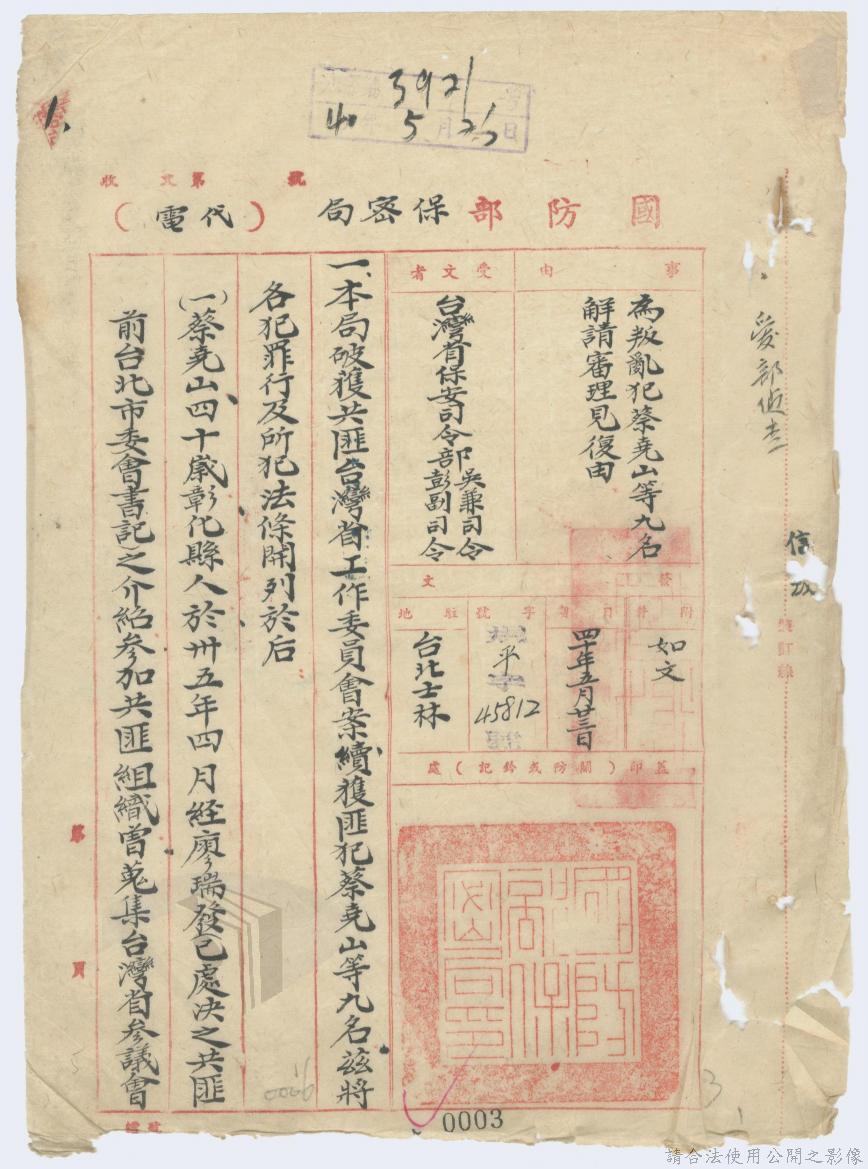 3921
40 5 23
號 第 文 收
國防部保密局(代電)
事由
為叛亂犯蔡堯山等九名
解請審理見復由
受文者
台灣省保安司令部吳兼司令
彭副司令
發文
附件
如文
日期
四十年五月廿三日
字號
平
45812
駐地
台北士林
蓋印(關防或鈐記)處
國防部保密局印
一、本局破獲共匪台灣省工作委員會案續獲匪犯蔡堯山等九名茲將
各犯罪行及所犯法條開列於后
(一)蔡堯山四十歲彰化縣人於卅五年四月經廖瑞發已處決之共匪
前台北市委會書記之介紹參加共匪組織曾蒐集台灣省參議會
裝訂線
第
頁
0003
3
請合法使用公開之影像